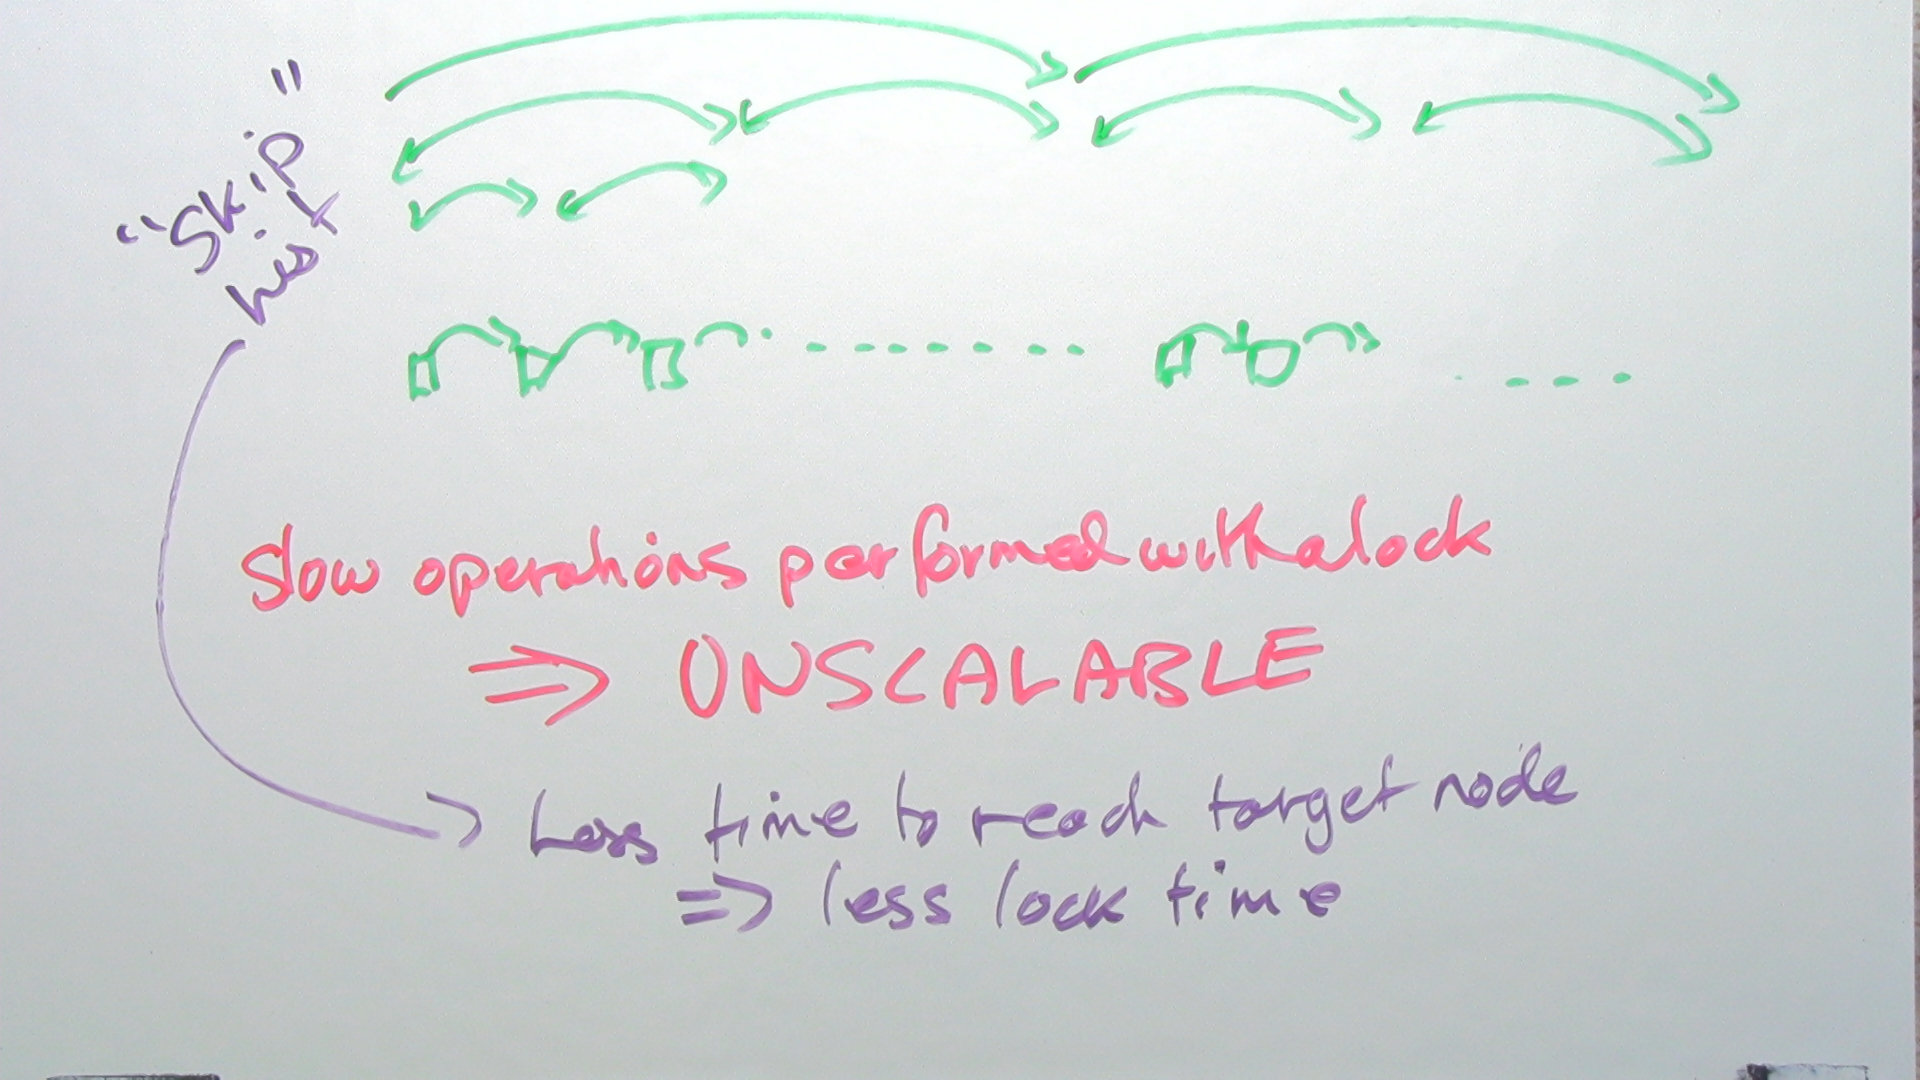 "Skip
List"
Slow operations performed with a lock
⇒ UNSCALABLE
Less time to reach target node
⇒ less lock time